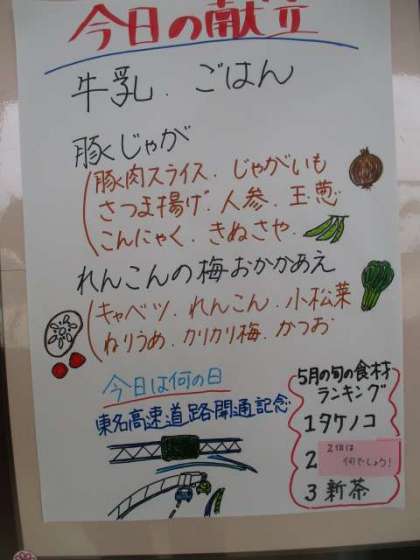 今日の献立
牛乳．ごはん
豚じゃが
豚肉スライス．じゃがいも
さつま揚げ．人参．玉葱
こんにゃく．きぬさや．
れんこんの梅おかかあえ
キャベツ．れんこん．小松菜
ねりうめ．カリカリ梅．かつお
今日は何の日
東名高速道路開通記念
5月の旬の食材
ランキング
1タケノコ
2 2位は
何でしょう!
3新茶